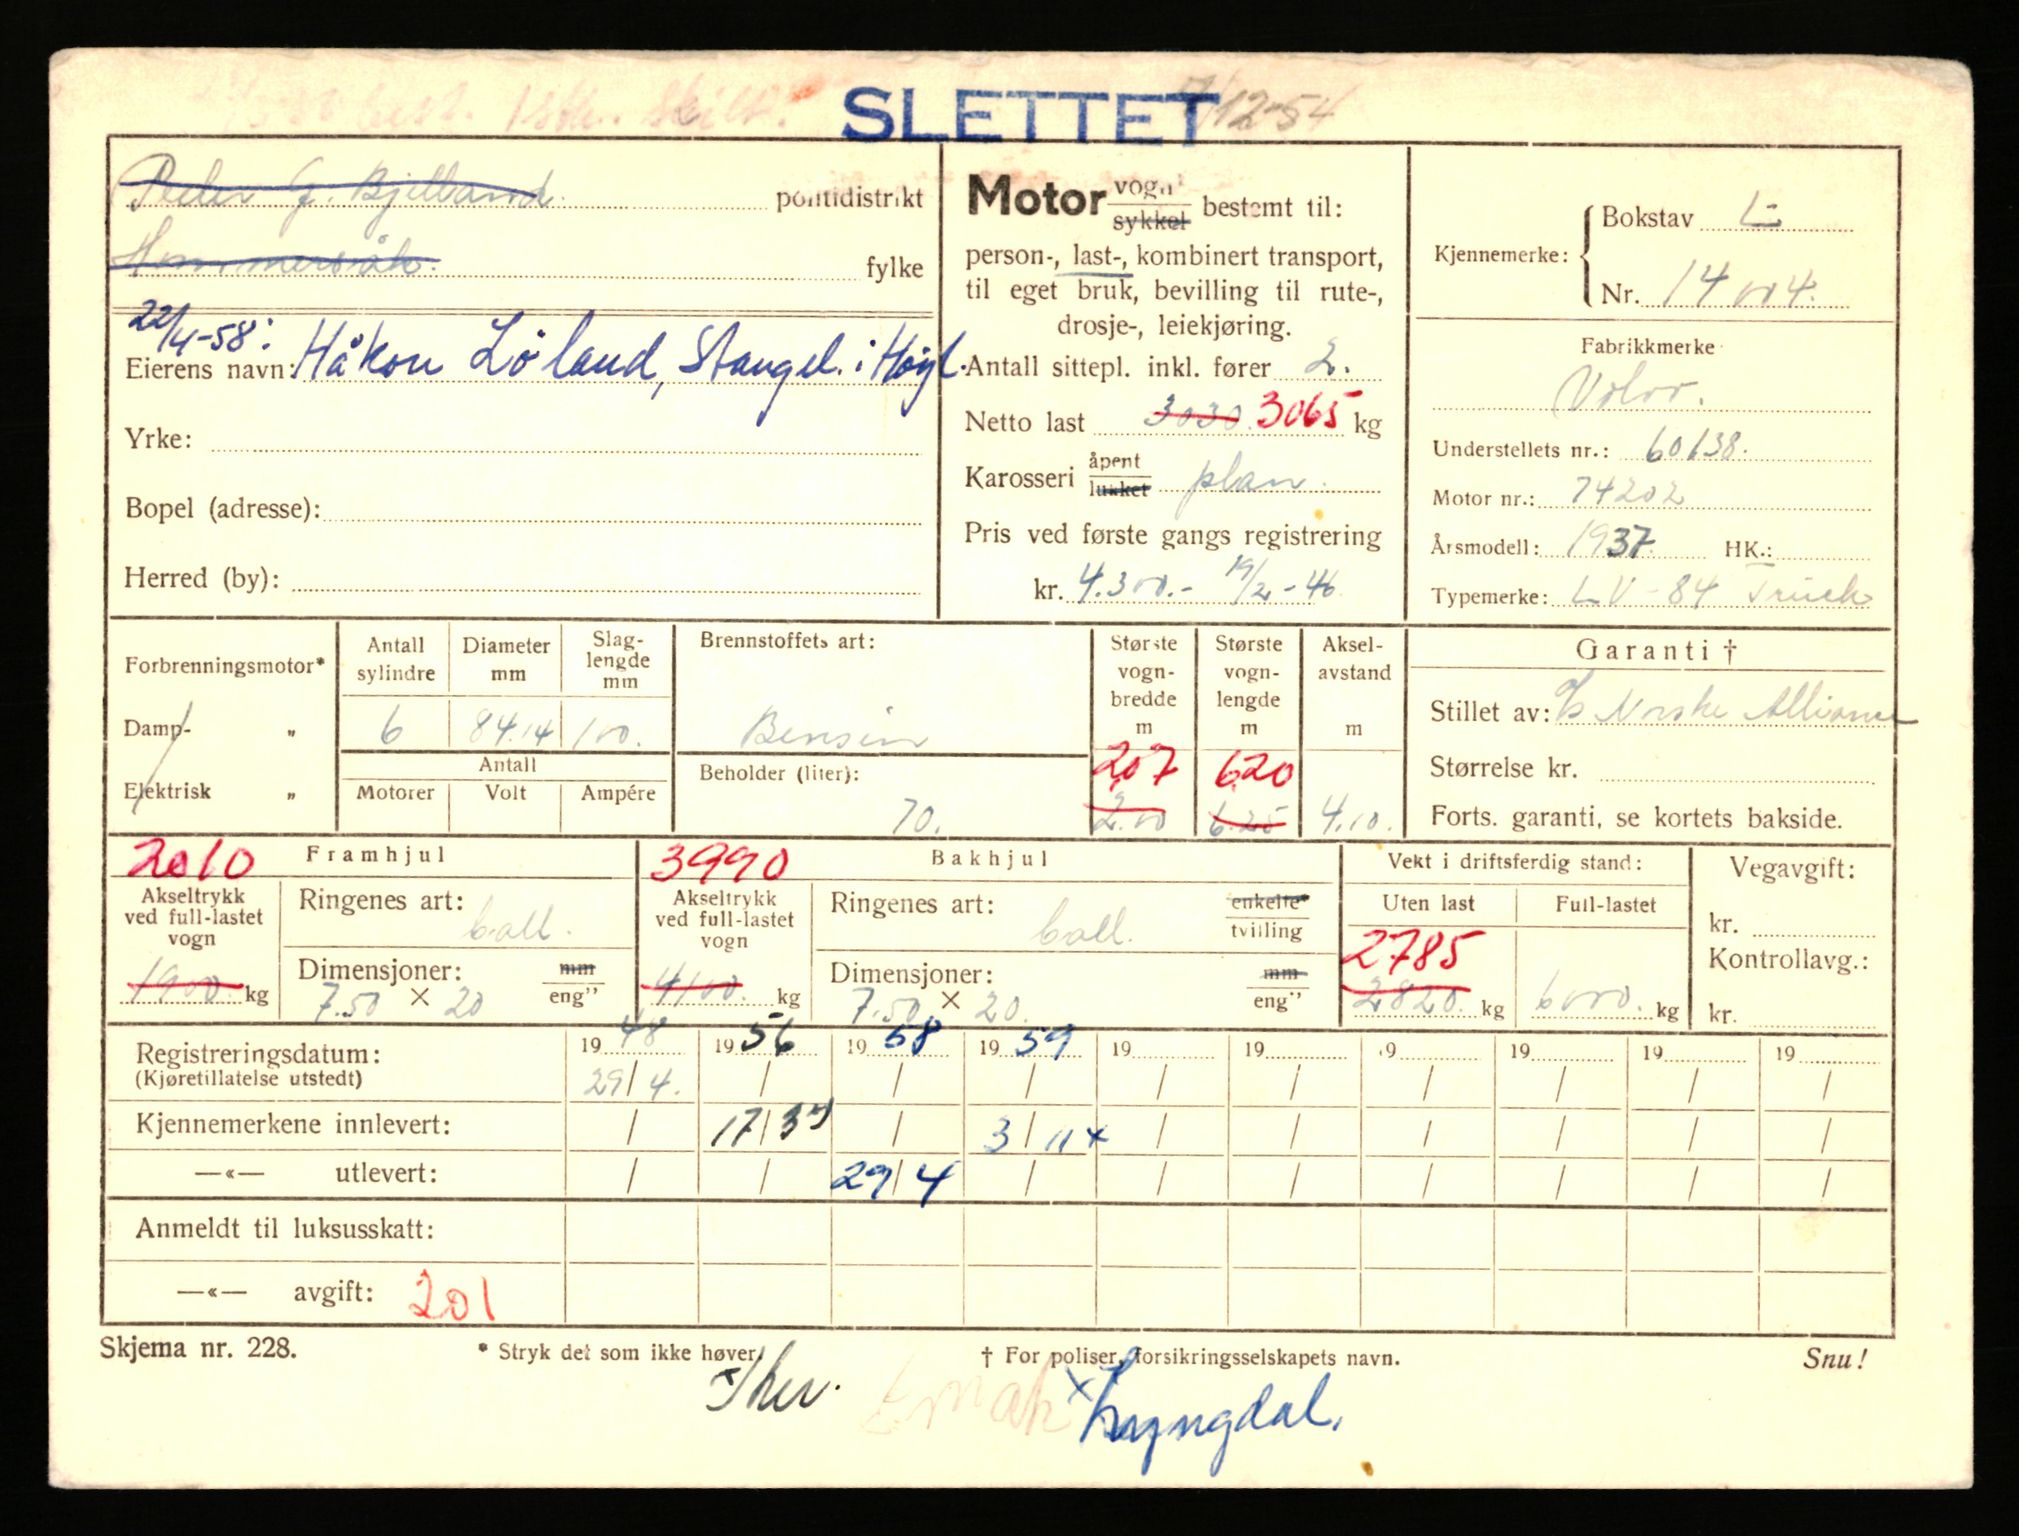 SLETTET 12-54
Peder G. Bjelland politidistrikt
Hommersåk. fylke
22/4-58:
Eierens navn: Håkon Löland, Stangel. i Høgl.
Yrke:
Bopel (adresse):
Herred (by):
Motor vogn sykkel bestemt til:
person-, last-, kombinert transport,
til eget bruk, bevilling til rute-,
drosje-, leiekjøring.
Antall sittepl. inkl. fører 2.
Netto last 3030. 3065 kg
Karosseri åpent lukket plan.
Pris ved første gangs registrering
kr. 4.300.- 19/2-46
Kjennemerke: Bokstav L
Nr. 14004.
Fabrikkmerke
Volvo.
Understellets nr.: 60138.
Motor nr.: 74202
Årsmodell: 1937. HK.:
Typemerke: LV-84 Truck
Forbrenningsmotor*
Damp- „
Elektrisk „
Antall sylindre 6
Diameter mm 84.14
Slaglengde mm 100.
Antall
Motorer Volt Ampére
Brennstoffets art:
Bensin
Beholder (liter):
70.
Største vognbredde m 207 2.00
Største vognlengde m 620 6.25
Akselavstand m 4.10.
Garanti †
Stillet av: Norske Alliance
Størrelse kr.
Forts. garanti, se kortets bakside.
2010 Framhjul
Akseltrykk ved full-lastet vogn
1900. kg
Ringenes art: ball.
Dimensjoner: mm eng”
7.50 × 20
3990 Bakhjul
Akseltrykk ved full-lastet vogn
4100. kg
Ringenes art: ball. enkelte* tvilling
Dimensjoner: mm eng”
7.50 × 20.
Vekt i driftsferdig stand:
Uten last Full-lastet
2785
2820. kg 6000. kg
Vegavgift:
kr.
Kontrollavg.:
kr.
Registreringsdatum: 1948 1956 1958 1959 19 19 19 19 19 19
(Kjøretillatelse utstedt) 29/4. / / / / / / / / /
Kjennemerkene innlevert: / 17/3 / 3/11 x / / / / / /
—«— utlevert: / / 29/4 / / / / / / /
Anmeldt til luksusskatt:
—«— avgift: 201
Skjema nr. 228. * Stryk det som ikke høver. † For poliser, forsikringsselskapets navn. Snu!
x Lyngdal.